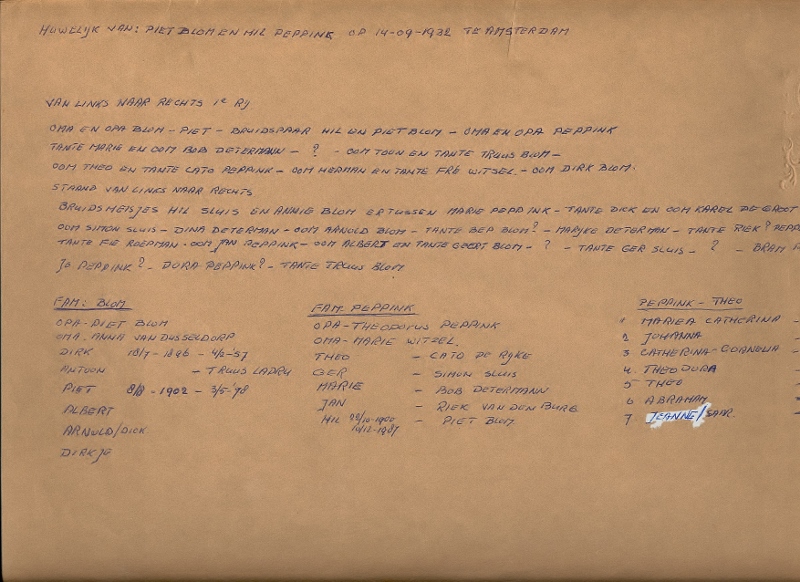 HUWELIJK VAN: PIET BLOM EN HIL PEPPINK OP 14-09-1932 TE AMSTERDAM
VAN LINKS NAAR RECHTS 1e RIJ
OMA EN OPA BLOM - PIET - BRUIDSPAAR HIL EN PIET BLOM - OMA EN OPA PEPPINK
TANTE MARIE EN OOM BOB DETERMANN - ? - OOM TOON EN TANTE TRUUS BLOM -
OOM THEO EN TANTE CATO PEPPINK - OOM HERMAN EN TANTE FRÉ WITSEL - OOM DIRK BLOM.
STAAND VAN LINKS NAAR RECHTS
BRUIDSMEISJES HIL SLUIS EN ANNIE BLOM ERTUSSEN MARIE PEPPINK - TANTE DICK EN OOM KAREL DE GROOT
OOM SIMON SLUIS - DINA DETERMAN - OOM ARNOLD BLOM - TANTE BEP BLOM? - MARYKE DETERMAN - TANTE RIEK? PEPP
TANTE FIE ROEPMAN - OOM JAN PEPPINK - OOM ALBERT EN TANTE GEERT BLOM - ? - TANTE GER SLUIS - ? - BRAM P
JO PEPPINK? - DORA PEPPINK? - TANTE TRUUS BLOM
FAM: BLOM
OPA - PIET BLOM
OMA - ANNA VAN DUSSELDORP
DIRK 18/7 - 1896 - 4/2-57
ANTOON - TRUUS LADRU
PIET 8/8 - 1902 - 3/5-'78
ALBERT
ARNOLD/DICK
DIRKJE
FAM. PEPPINK
OPA - THEODORUS PEPPINK
OMA - MARIE WITZEL
THEO - CATO DE RIJKE
GER - SIMON SLUIS
MARIE - BOB DETERMANN
JAN - RIEK VAN DEN BURG
HIL 22/10-1900 - PIET BLOM
10/12-1987
PEPPINK - THEO
1 MARIEA CATHERINA -
2 JOHANNA
3 CATHERINA-CORNELIA -
4. THEODORA
5 THEO
6 ABRAHAM
7 JEANNE/SAIR.